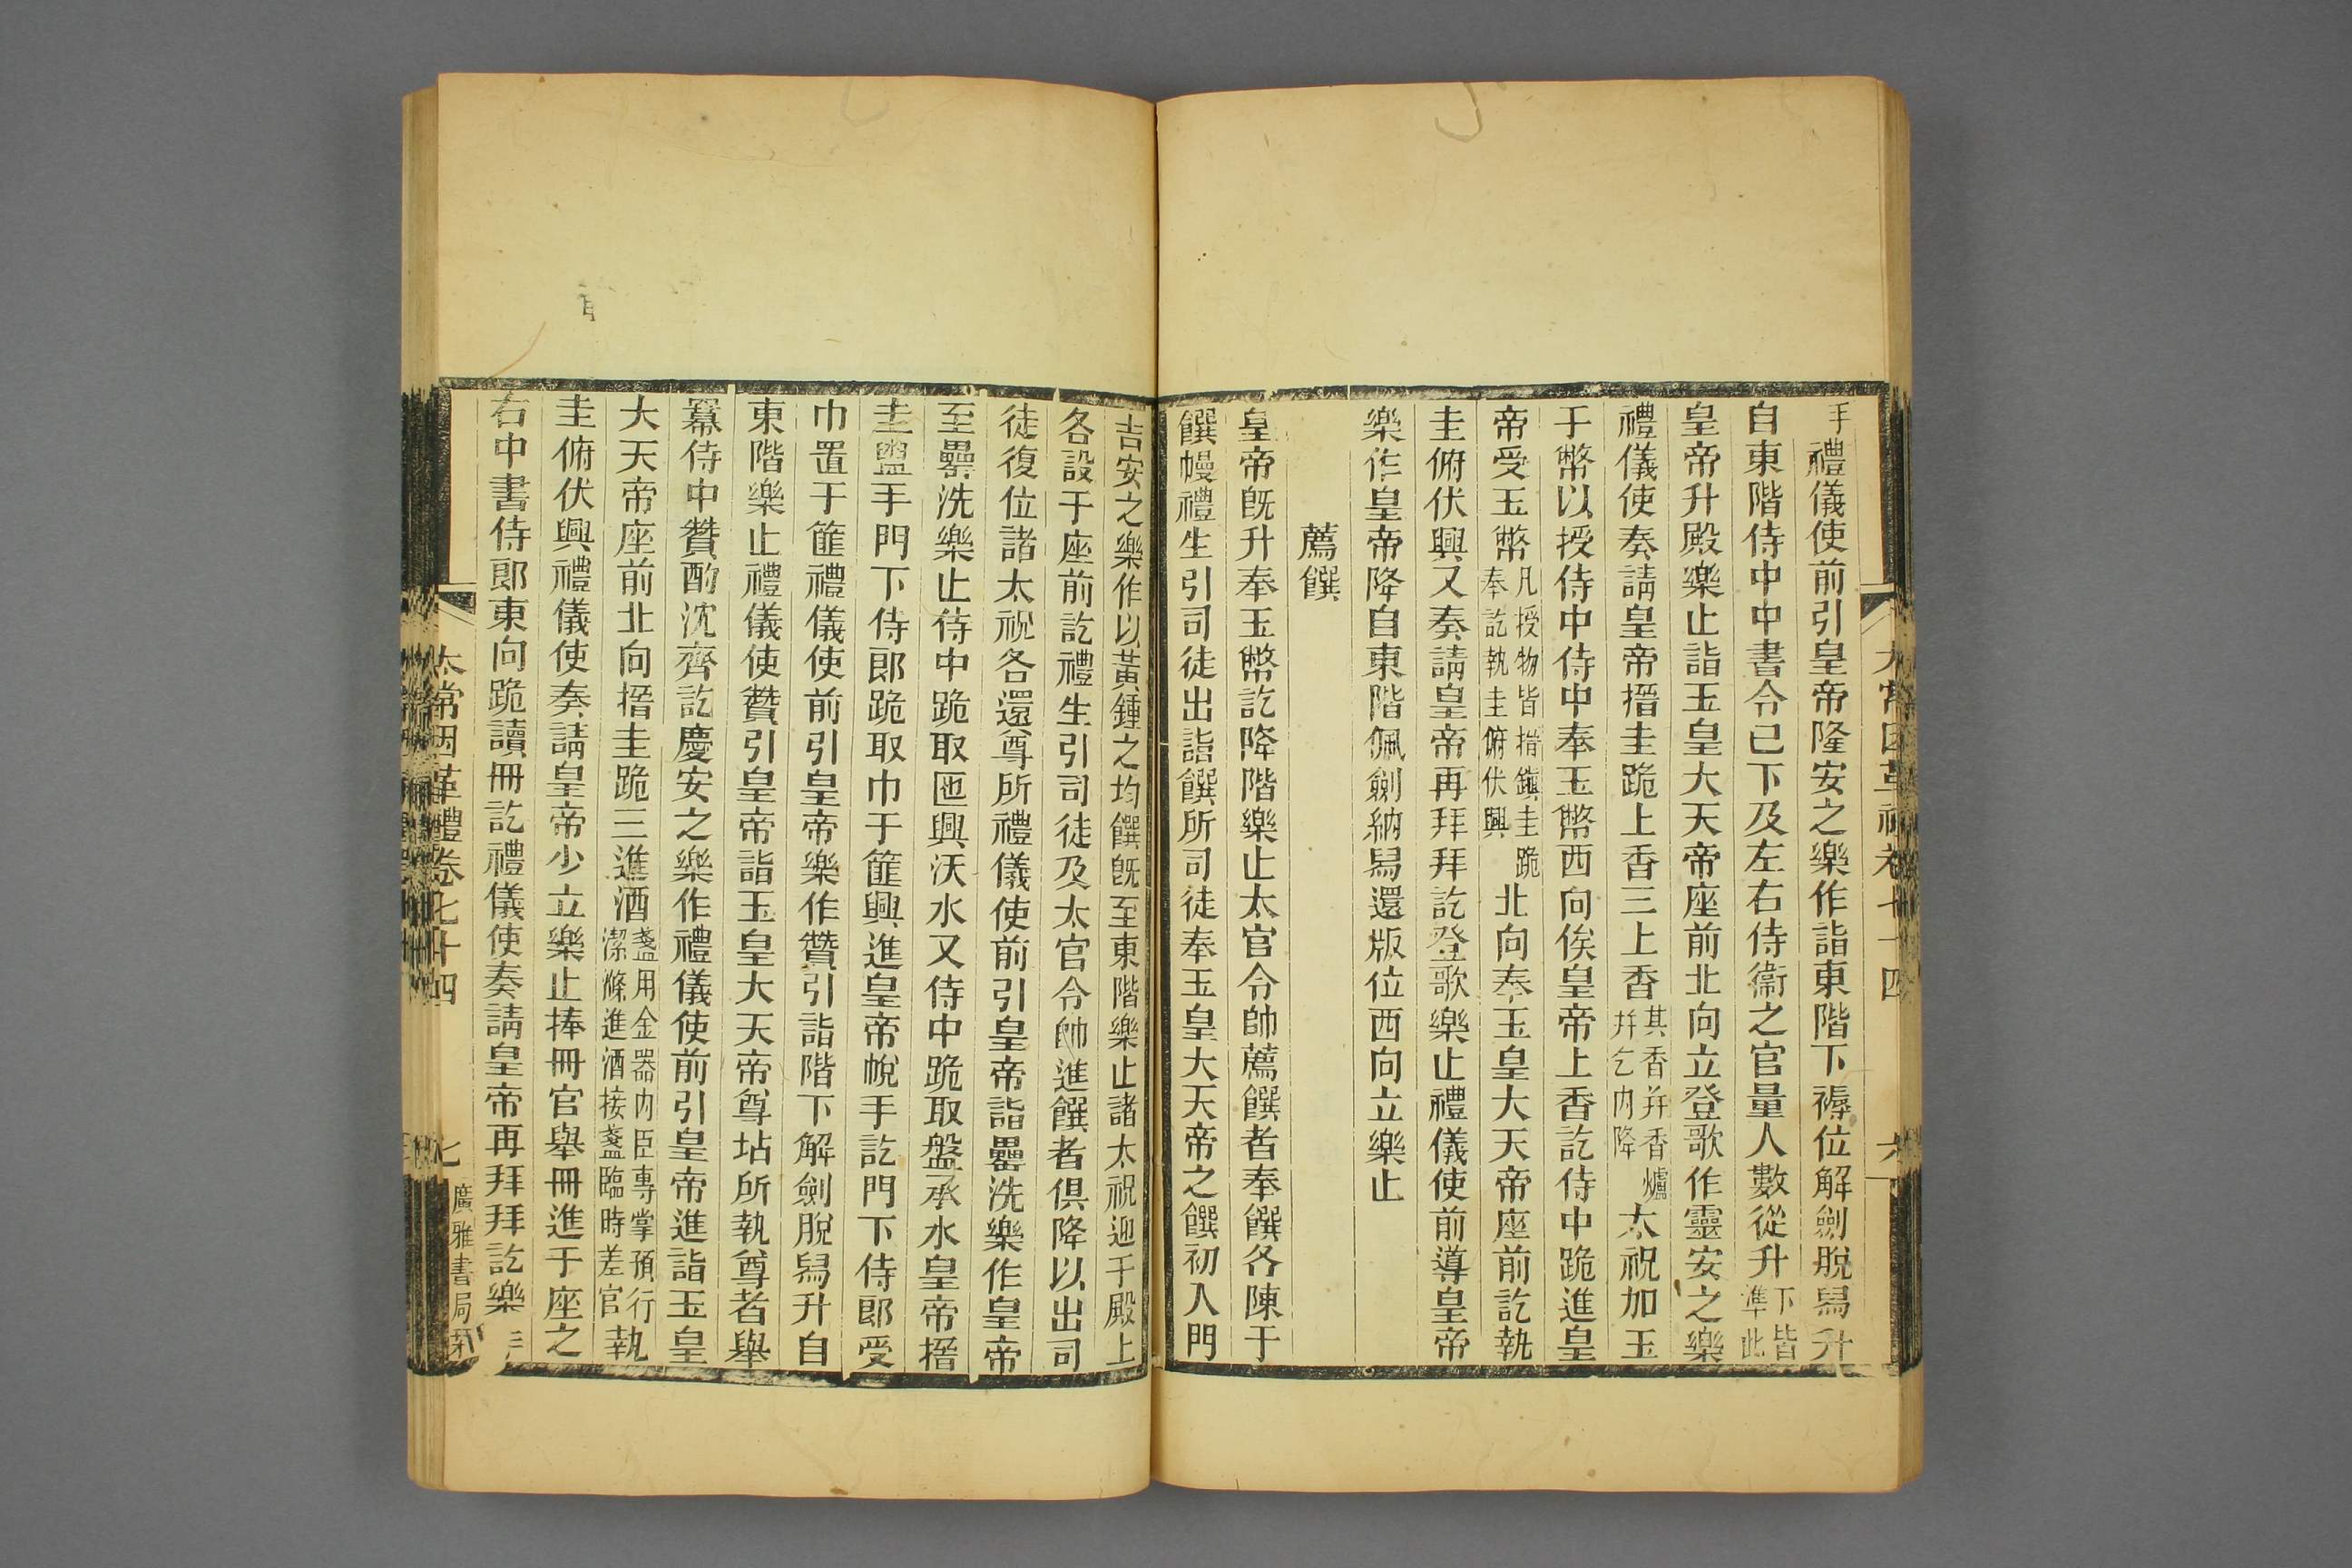 手禮儀使前引皇帝隆安之樂作詣東階下褥位解劍脫舄升
自東階侍中中書令已下及左右侍衞之官量人數從升下皆準此
皇帝升殿樂止詣玉皇大天帝座前北向立登歌作靈安之樂
禮儀使奏請皇帝搢圭跪上香三上香其香幷香爐幷乞內降太祝加玉
于幣以授侍中侍中奉玉幣西向俟皇帝上香訖侍中跪進皇
帝受玉幣凡授物皆搢鎭圭跪奉訖執圭俯伏興北向奉玉皇大天帝座前訖執
圭俯伏興又奏請皇帝再拜拜訖登歌樂止禮儀使前導皇帝
樂作皇帝降自東階佩劍納舄還版位西向立樂止
薦饌
皇帝旣升奉玉幣訖降階樂止太官令帥薦饌者奉饌各陳于
饌幔禮生引司徒出詣饌所司徒奉玉皇大天帝之饌初入門
吉安之樂作以黃鍾之均饌旣至東階樂止諸太祝迎于殿上
各設于座前訖禮生引司徒及太官令帥進饌者俱降以出司
徒復位諸太祝各還尊所禮儀使前引皇帝詣罍洗樂作皇帝
至罍洗樂止侍中跪取匜興沃水又侍中跪取盤承水皇帝搢
圭盥手門下侍郎跪取巾于篚興進皇帝帨手訖門下侍郎受
巾置于篚禮儀使前引皇帝樂作贊引詣階下解劍脫舄升自
東階樂止禮儀使贊引皇帝詣玉皇大天帝尊坫所執尊者舉
冪侍中贊酌沈齊訖慶安之樂作禮儀使前引皇帝進詣玉皇
大天帝座前北向搢圭跪三進酒盞用金器內臣專掌預行潔滌進酒接盞臨時差官執
圭俯伏興禮儀使奏請皇帝少立樂止捧冊官舉冊進于座之
右中書侍郎東向跪讀冊訖禮儀使奏請皇帝再拜拜訖樂
太常因革禮卷七十四
七
廣雅書局栞